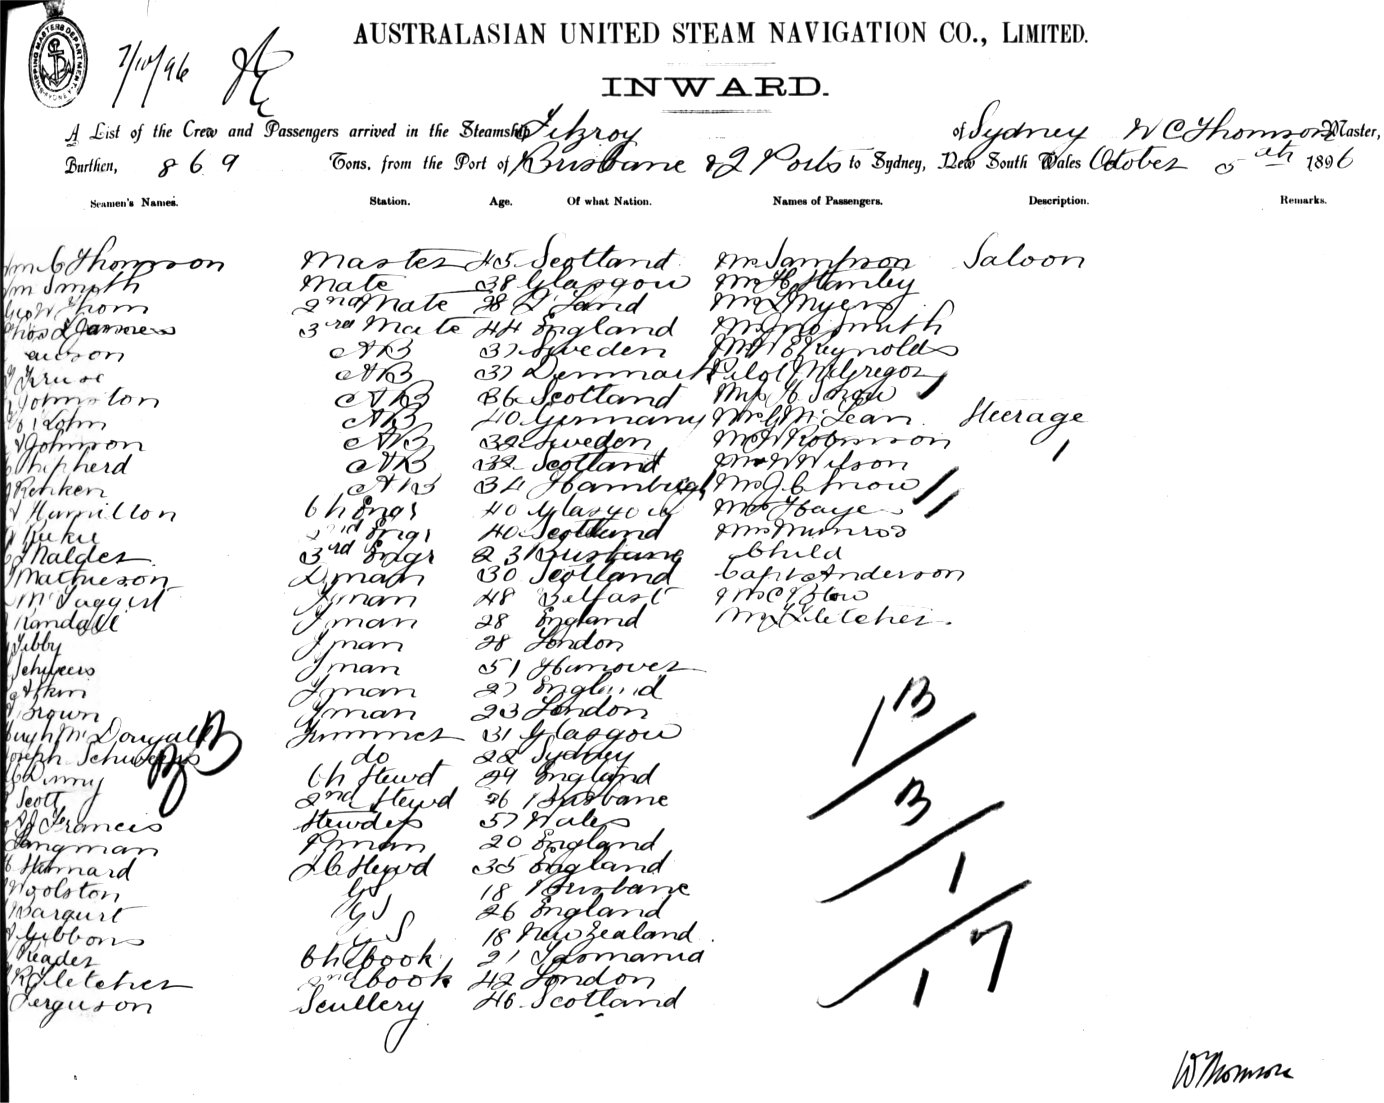 SHIPPING MASTERS DEPARTMENT
7/10/96
AUSTRALASIAN UNITED STEAM NAVIGATION CO., LIMITED.
INWARD.
A List of the Crew and Passengers arrived in the Steamship Fitzroy of Sydney W C Thomson Master,
Burthen, 869 Tons, from the Port of Brisbane & 2 Ports to Sydney, New South Wales October 5th 1896
Seamen's Names. Station. Age. Of what Nation. Names of Passengers. Description. Remarks.
Wm C Thomson Master 45 Scotland Mr Sampson Saloon
Wm Smyth Mate 38 Glasgow Mr H Hanley
Geo W Thom 2nd Mate 28 Mr L Myers
3rd Mate 44 England Mr Jno Smith
AB 37 Sweden Mr W E Reynolds
Kruse AB 37 Denmark Pilot McGregor
Johnston AB 36 Scotland Mr H Snow
Kohn AB 40 Germany Mr G McLean Steerage
Johnson AB 32 Sweden Mr W Robinson 1
Shepherd AB 32 Scotland Mr W Wilson
Renken AB 34 Hamburgh Mr J C
Hamilton Ch Engr 40 Glasgow Mrs Haye
2nd Engr 40 Scotland Mrs Munro
3rd Engr 23 Brisbane Child
Mathieson Dman 30 Scotland Capt Anderson
McTaggert Fman 48 Belfast
Randall Fman 28 England Mr Fletcher.
Tibby Fman 28 London
Fman 51 Hanover
Atkin Fman 27 England
Brown Fman 23 London
Hugh McDougall Trimmer 31 Glasgow
Joseph do 22 Sydney
Denny Ch Stewd 29 England
Scott 2nd Stewd 26 Brisbane
Francis Stewdess 57 Wales
Langman Pman 20 England
Hannard 2 C Stewd 35 England
Woolston GS 18 Brisbane
GS 26 England
Gibbons GS 18 New Zealand
Reader Ch Cook 21 Tasmania
R Fletcher 2nd Cook 42 London
Ferguson Scullery 46 Scotland
13
3
1
17
W Thomson